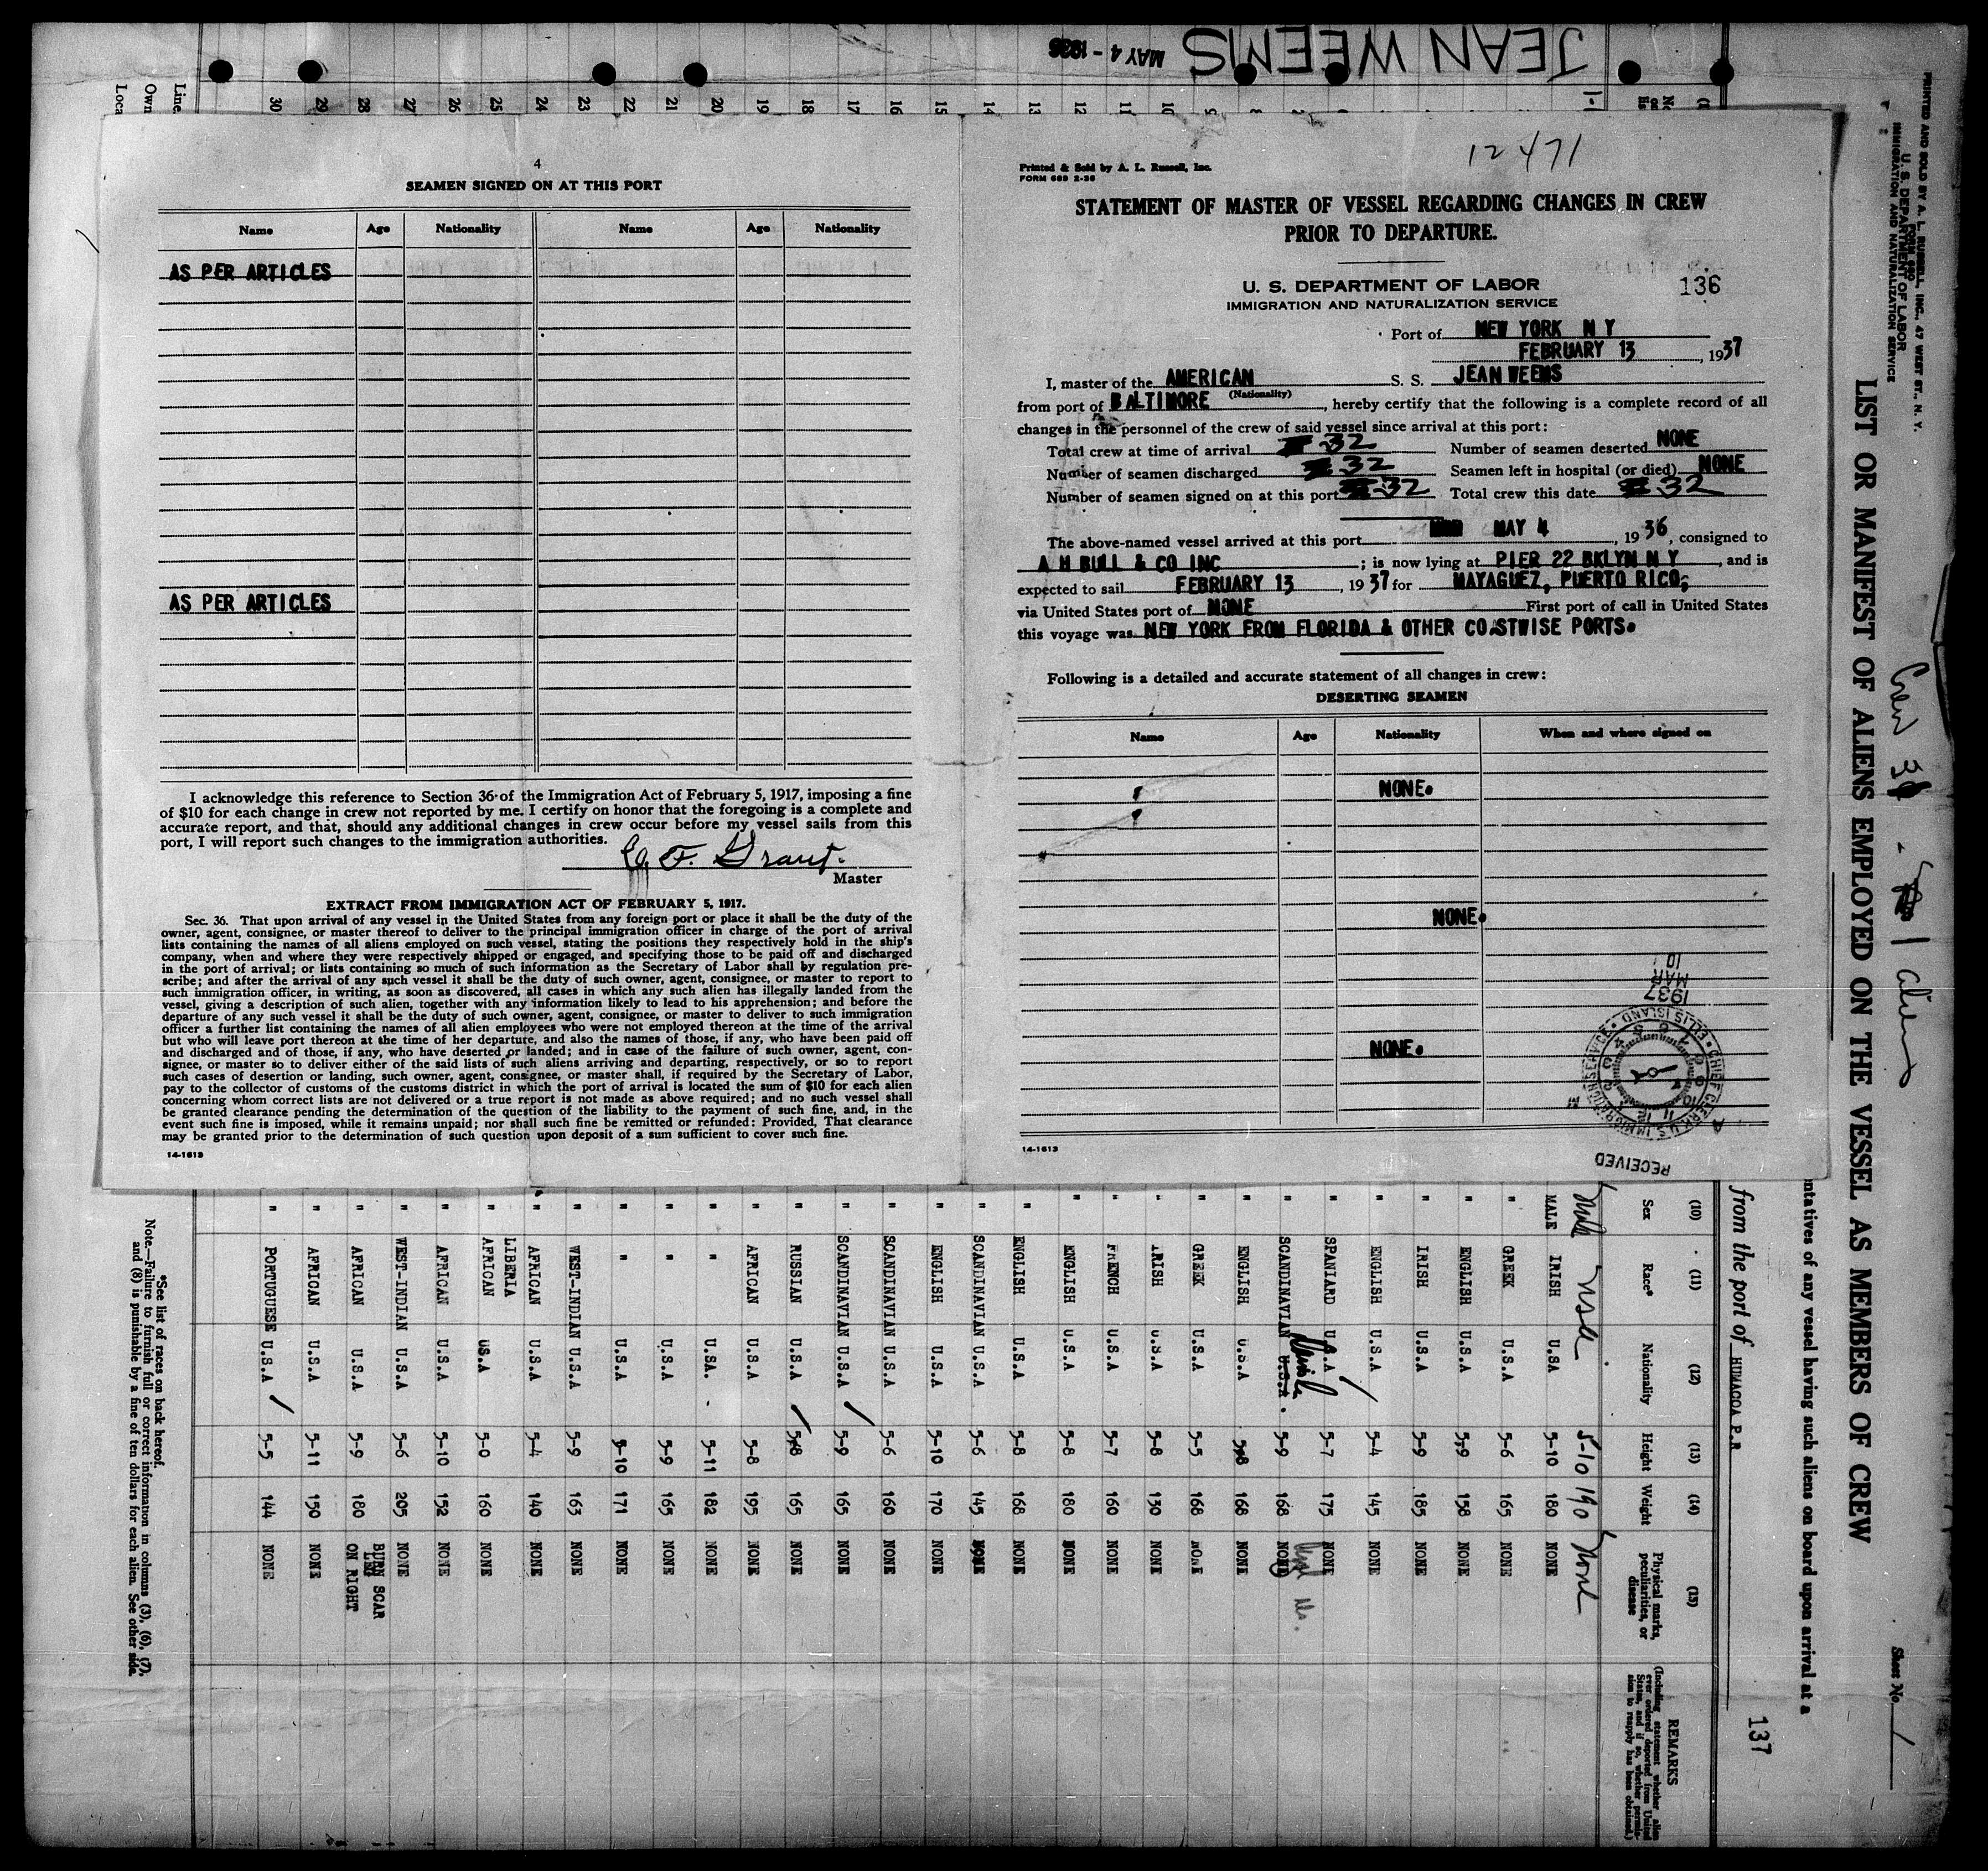 JEAN WEEMS
MAY 4 - 1936
Line
Own
Loca
30 29 28 27 26 25 24 23 22 21 20 19 18 17 16 15 14 13 12 11 10 9
4
SEAMEN SIGNED ON AT THIS PORT
Name Age Nationality Name Age Nationality
AS PER ARTICLES
AS PER ARTICLES
I acknowledge this reference to Section 36 of the Immigration Act of February 5, 1917, imposing a fine
of $10 for each change in crew not reported by me. I certify on honor that the foregoing is a complete and
accurate report, and that, should any additional changes in crew occur before my vessel sails from this
port, I will report such changes to the immigration authorities.
F. Grant.
Master
EXTRACT FROM IMMIGRATION ACT OF FEBRUARY 5, 1917.
Sec. 36. That upon arrival of any vessel in the United States from any foreign port or place it shall be the duty of the
owner, agent, consignee, or master thereof to deliver to the principal immigration officer in charge of the port of arrival
lists containing the names of all aliens employed on such vessel, stating the positions they respectively hold in the ship's
company, when and where they were respectively shipped or engaged, and specifying those to be paid off and discharged
in the port of arrival; or lists containing so much of such information as the Secretary of Labor shall by regulation pre-
scribe; and after the arrival of any such vessel it shall be the duty of such owner, agent, consignee, or master to report to
such immigration officer, in writing, as soon as discovered, all cases in which any such alien has illegally landed from the
vessel, giving a description of such alien, together with any information likely to lead to his apprehension; and before the
departure of any such vessel it shall be the duty of such owner, agent, consignee, or master to deliver to such immigration
officer a further list containing the names of all alien employees who were not employed thereon at the time of the arrival
but who will leave port thereon at the time of her departure, and also the names of those, if any, who have been paid off
and discharged and of those, if any, who have deserted or landed; and in case of the failure of such owner, agent, con-
signee, or master so to deliver either of the said lists of such aliens arriving and departing, respectively, or so to report
such cases of desertion or landing, such owner, agent, consignee, or master shall, if required by the Secretary of Labor,
pay to the collector of customs of the customs district in which the port of arrival is located the sum of $10 for each alien
concerning whom correct lists are not delivered or a true report is not made as above required; and no such vessel shall
be granted clearance pending the determination of the question of the liability to the payment of such fine, and, in the
event such fine is imposed, while it remains unpaid; nor shall such fine be remitted or refunded: Provided, That clearance
may be granted prior to the determination of such question upon deposit of a sum sufficient to cover such fine.
14-1613
12471
Printed & Sold by A. L. Russell, Inc.
FORM 689 2-36
STATEMENT OF MASTER OF VESSEL REGARDING CHANGES IN CREW
PRIOR TO DEPARTURE.
U. S. DEPARTMENT OF LABOR
IMMIGRATION AND NATURALIZATION SERVICE
136
Port of NEW YORK N Y
FEBRUARY 13, 1937
I, master of the AMERICAN S. S. JEAN WEEMS
(Nationality)
from port of BALTIMORE, hereby certify that the following is a complete record of all
changes in the personnel of the crew of said vessel since arrival at this port:
Total crew at time of arrival 32 Number of seamen deserted NONE
Number of seamen discharged 32 Seamen left in hospital (or died) NONE
Number of seamen signed on at this port 32 Total crew this date 32
The above-named vessel arrived at this port MAY 4, 1936, consigned to
A H BULL & CO INC; is now lying at PIER 22 BKLYN N Y, and is
expected to sail FEBRUARY 13, 1937 for MAYAGUEZ, PUERTO RICO;
via United States port of NONE First port of call in United States
this voyage was NEW YORK FROM FLORIDA & OTHER COASTWISE PORTS.
Following is a detailed and accurate statement of all changes in crew:
DESERTING SEAMEN
Name Age Nationality When and where signed on
NONE.
NONE.
NONE.
14-1613
RECEIVED
CHIEF CLERK U.S. IMMIGRATION SERVICE • ELLIS ISLAND
1937
MAR
10
A M
PRINTED AND SOLD BY A. L. RUSSELL, INC., 47 WEST ST., N. Y.
FORM 680
U. S. DEPARTMENT OF LABOR
IMMIGRATION AND NATURALIZATION SERVICE
LIST OR MANIFEST OF ALIENS EMPLOYED ON THE VESSEL AS MEMBERS OF CREW
Crew - 1 alien
Sheet No.
ntatives of any vessel having such aliens on board upon arrival at a
from the port of HUMACOA P.R
137
(10) (11) (12) (13) (14) (15)
Sex Race* Nationality Height Weight Physical marks, peculiarities, or disease
REMARKS
(Including statement whether alien ever ordered deported from United States, and if so, whether permission to reapply has been obtained.)
Male 5-10 190 None
MALE IRISH U.SA 5-10 180 NONE
" GREEK U.S.A 5-6 165 NONE
" ENGLISH U.S.A 5-9 158 NONE
" IRISH U.S.A 5-9 185 NONE
" ENGLISH U.S.A 5-4 145 NONE
" SPANIARD U.S.A 5-7 175 NONE
" SCANDINAVIAN U.S.A. 5-9 168 NONE
" ENGLISH U.S.A 5-8 168 NONE
" GREEK U.S.A 5-5 168 NONE
" IRISH U.S.A 5-8 130 NONE
" FRENCH U.S.A 5-7 160 NONE
" ENGLISH U.S.A 5-8 180 NONE
" ENGLISH U.S.A 5-8 168 NONE
" SCANDINAVIAN U.S.A 5-6 145 NONE
" ENGLISH U.S.A 5-10 170 NONE
" SCANDINAVIAN U.S.A 5-6 160 NONE
" SCANDINAVIAN U.S.A 5-9 165 NONE
" RUSSIAN U.S.A 5-8 165 NONE
" AFRICAN U.S.A 5-8 195 NONE
" " U.SA. 5-11 182 NONE
" " U.S.A 5-9 165 NONE
" " U.S.A 5-10 171 NONE
" WEST-INDIAN U.S.A 5-9 163 NONE
" AFRICAN U.S.A 5-4 140 NONE
LIBERIA
" AFRICAN US.A 5-0 160 NONE
" AFRICAN U.S.A 5-10 152 NONE
" WEST-INDIAN U.S.A 5-6 205 NONE
" AFRICAN U.S.A 5-9 180 BURN SCAR ON RIGHT
" AFRICAN U.S.A 5-11 150 NONE
" PORTUGUESE U.S.A 5-5 144 NONE
*See list of races on back hereof.
Note.—Failure to furnish full or correct information in columns (3), (6), (7),
and (8) is punishable by a fine of ten dollars for each alien. See other side.